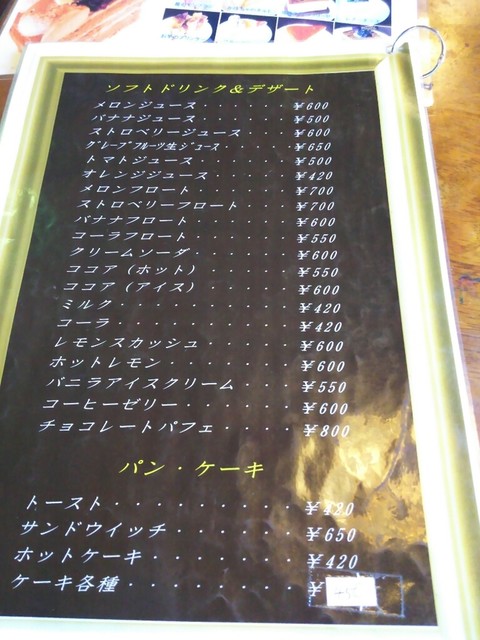 ソフトドリンク&デザート
メロンジュース・・・・・・・¥600
バナナジュース・・・・・・・¥500
ストロベリージュース・・・・¥600
グレープフルーツ生ジュース・・・・・・¥650
トマトジュース・・・・・・・¥500
オレンジジュース・・・・・・¥420
メロンフロート・・・・・・・¥700
ストロベリーフロート・・・・¥700
バナナフロート・・・・・・・¥600
コーラフロート・・・・・・・¥550
クリームソーダ・・・・・・・¥600
ココア(ホット)・・・・・・¥550
ココア(アイス)・・・・・・¥600
ミルク・・・・・・・・・・・¥420
コーラ・・・・・・・・・・・¥420
レモンスカッシュ・・・・・・¥600
ホットレモン・・・・・・・・¥600
バニラアイスクリーム・・・・¥550
コーヒーゼリー・・・・・・・¥600
チョコレートパフェ・・・・・¥800
パン・ケーキ
トースト・・・・・・・・・・¥420
サンドウイッチ・・・・・・・¥650
ホットケーキ・・・・・・・・¥420
ケーキ各種・・・・・・・・・¥